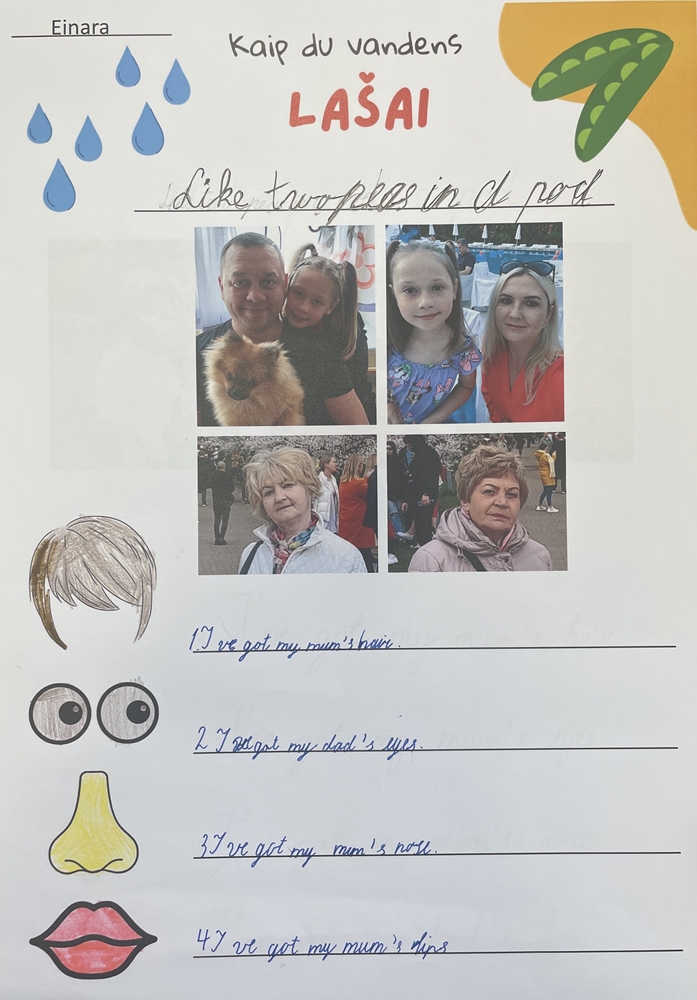 Einara
Kaip du vandens
LAŠAI
Like two peas in a pod
1. I've got my mum's hair.
2 I've got my dad's eyes.
3 I've got my mum's nose.
4 I've got my mum's lips